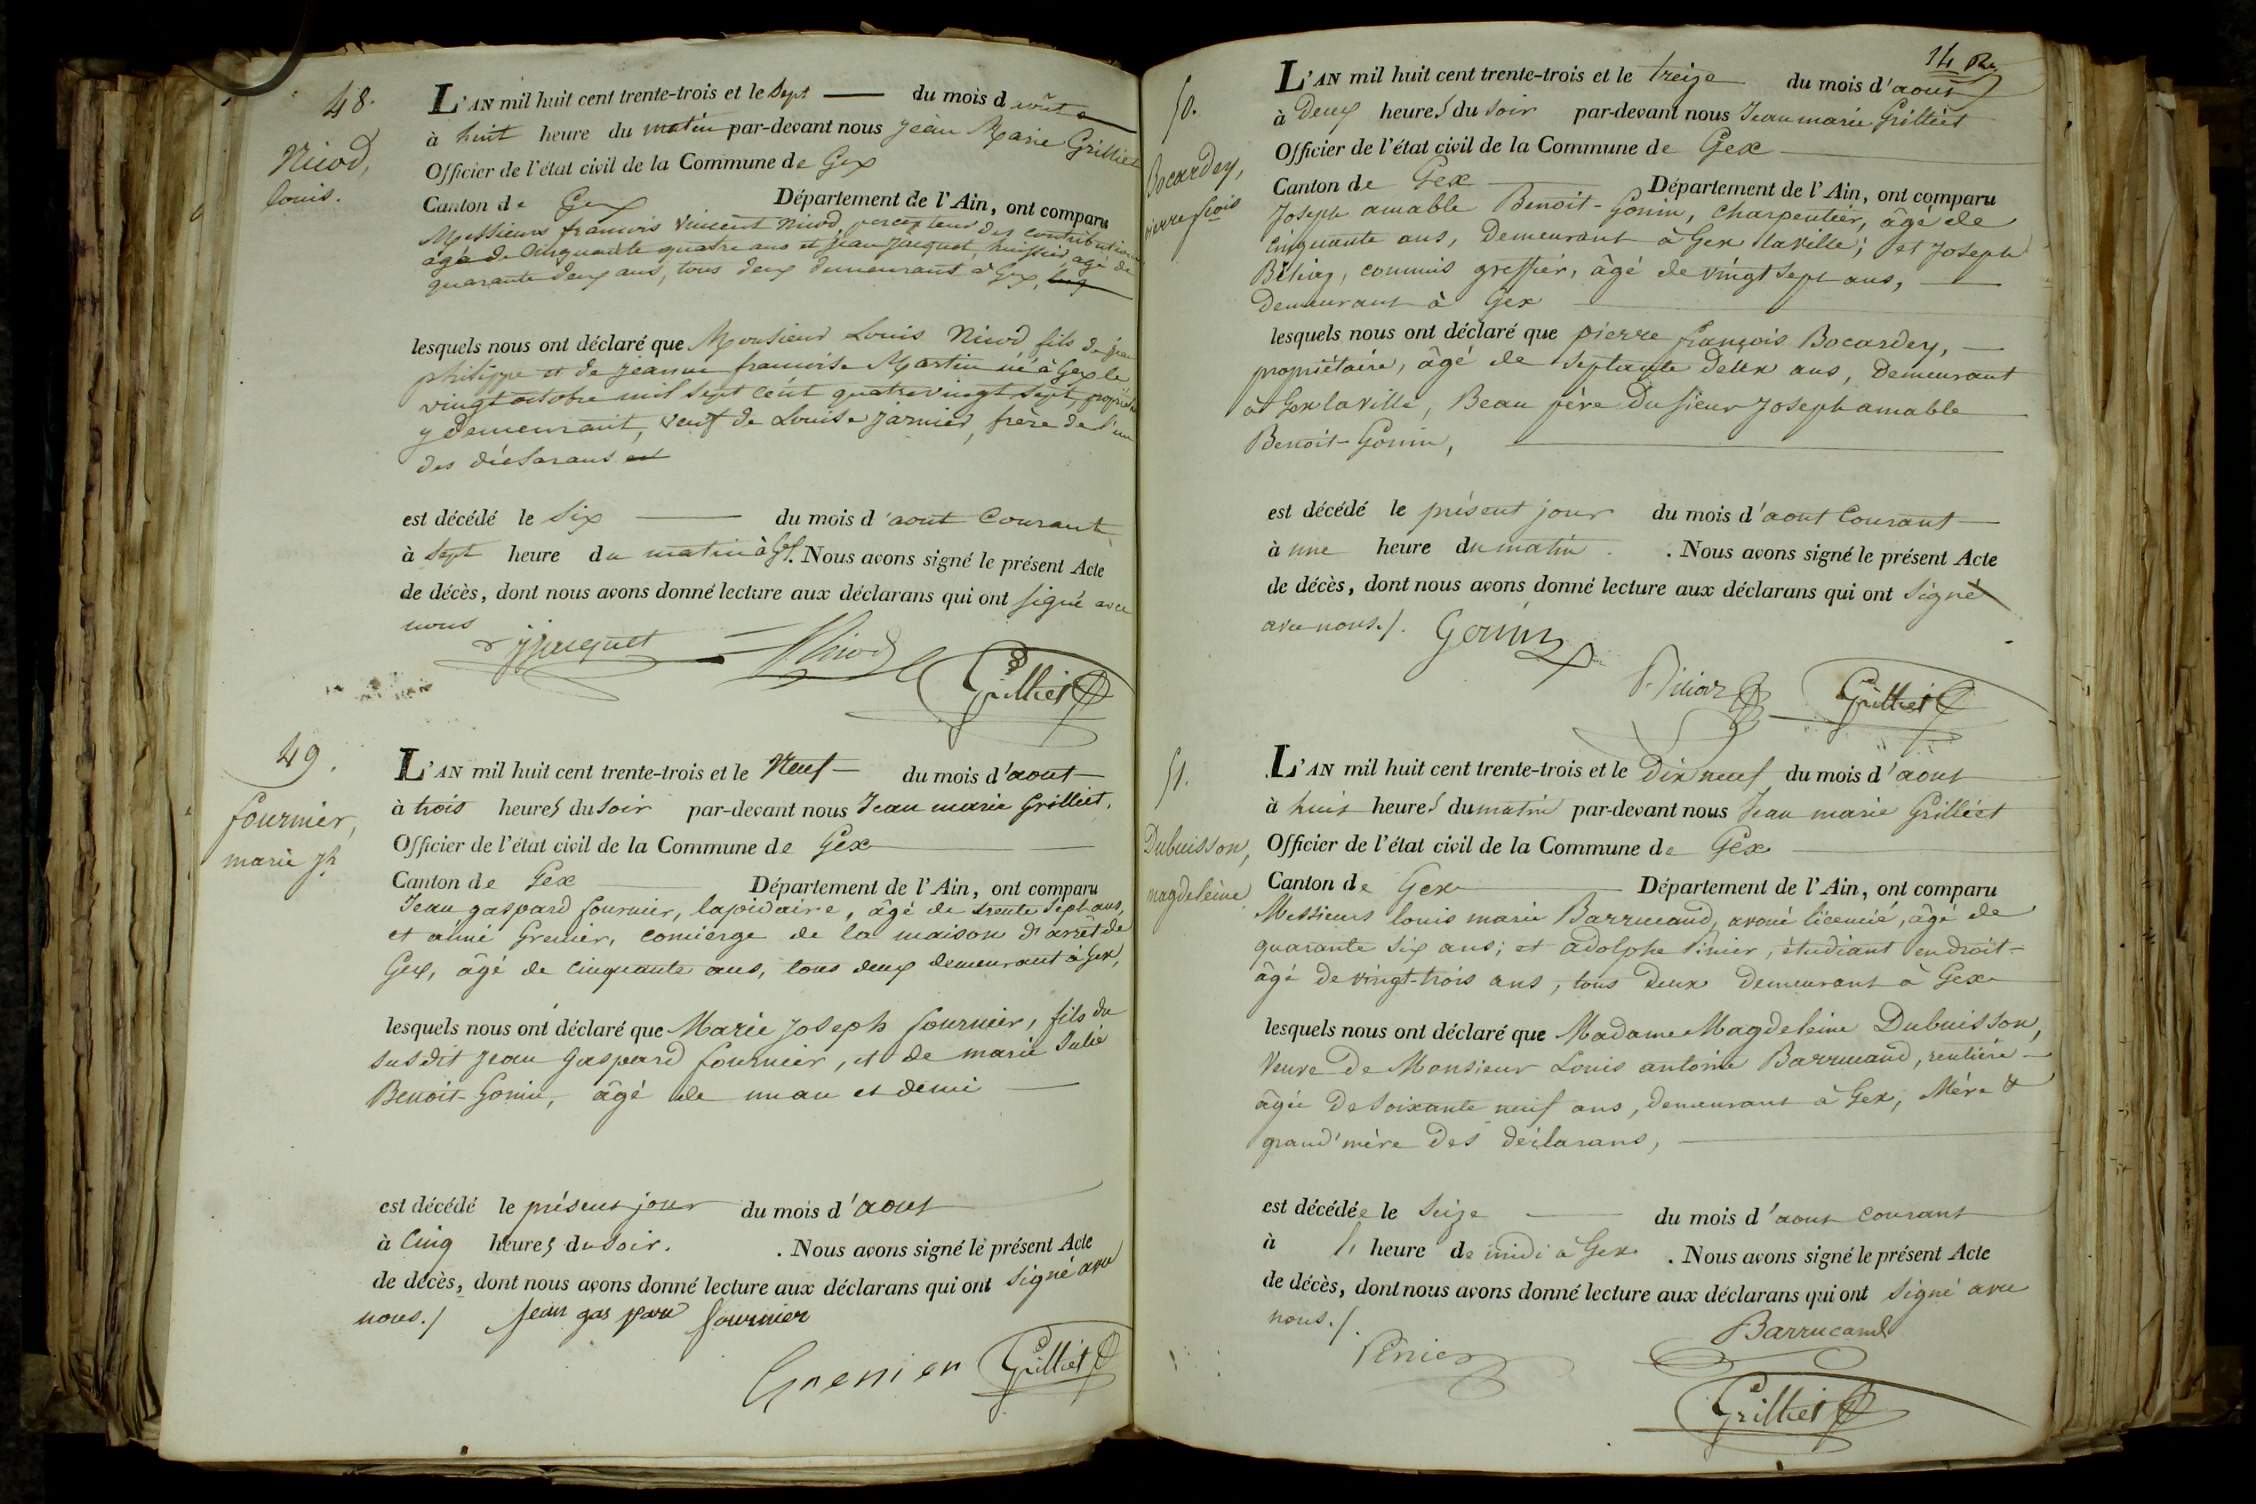 48.
Nicod,
Louis.
L'AN mil huit cent trente-trois et le Sept du mois d'août
à huit heure du matin par-devant nous Jean Marie Grilliet
Officier de l'état civil de la Commune de Gex
Canton de Gex Département de l'Ain, ont comparu
Messieurs françois Vincent Nicod percepteur des contributions
âgé de Cinquante quatre ans et Jean Jacquet, huissier, agé de
quarante deux ans, tous deux demeurant à Gex,
lesquels nous ont déclaré que Monsieur Louis Nicod fils de Jean
philippe et de jeanne françoise Martin né à Gex le
vingt octobre mil sept cent quatre vingt sept, propriétaire
y demeurant, veuf de Louise Jarnier, frère de l'un
des déclarans
est décédé le Six du mois d'aout Courant
à Sept heure du matin à Gex. Nous avons signé le présent Acte
de décès, dont nous avons donné lecture aux déclarans qui ont signé avec
nous
JJacquet Nicod
Grilliet
49.
fournier,
marie jh
L'AN mil huit cent trente-trois et le Neuf du mois d'aout
à trois heures du Soir par-devant nous Jean marie Grilliet,
Officier de l'état civil de la Commune de Gex
Canton de Gex Département de l'Ain, ont comparu
Jean gaspard fournier, lapidaire, âgé de trente sept ans,
et aimé Grenier, concierge de la maison d'arrêt de
Gex, âgé de cinquante ans, tous deux demeurant à Gex,
lesquels nous ont déclaré que Marie Joseph fournier, fils du
susdit Jean Gaspard fournier, et de marie Julie
Benoit-Gonin, âgé de un an et demi
est décédé le présent jour du mois d'aout
à Cinq heures du Soir. . Nous avons signé le présent Acte
de décès, dont nous avons donné lecture aux déclarans qui ont Signé avec
nous./ Jean gas pard fournier
Grenier Grilliet
14
50.
Bocardey,
pierre fçois
L'AN mil huit cent trente-trois et le treize du mois d'aout
à Deux heures du Soir par-devant nous Jean marie Grilliet
Officier de l'état civil de la Commune de Gex
Canton de Gex Département de l'Ain, ont comparu
Joseph amable Benoit-Gonin, charpentier, âgé de
Cinquante ans, Demeurant à Gex laville; et Joseph
commis greffier, âgé de vingt sept ans,
Demeurant à Gex
lesquels nous ont déclaré que pierre françois Bocardey,
propriétaire, âgé de septante deux ans, Demeurant
à Gex laville, Beau père du sieur Joseph amable
Benoit-Gonin,
est décédé le présent jour du mois d'aout Courant
à une heure du matin . . Nous avons signé le présent Acte
de décès, dont nous avons donné lecture aux déclarans qui ont Signé
avec nous./. Gonin
Grilliet
51.
Dubuisson,
magdeleine
L'AN mil huit cent trente-trois et le Dix neuf du mois d'aout
à huit heures du matin par-devant nous Jean marie Grilliet
Officier de l'état civil de la Commune de Gex
Canton de Gex Département de l'Ain, ont comparu
Messieurs louis marie Barrucand, avoué licencié, âgé de
quarante six ans; et adolphe Pinier, étudiant en droit
âgé de vingt-trois ans, tous Deux Demeurant à Gex
lesquels nous ont déclaré que Madame Magdeleine Dubuisson,
Veuve De Monsieur Louis antoine Barrucand, rentière
âgée De Soixante neuf ans, demeurant à Gex, Mère &
grand'mère Des déclarans,
est décédée le Seize du mois d'aout courant
à heure de midi à Gex . Nous avons signé le présent Acte
de décès, dont nous avons donné lecture aux déclarans qui ont Signé avec
nous./. Barrucand
Grilliet